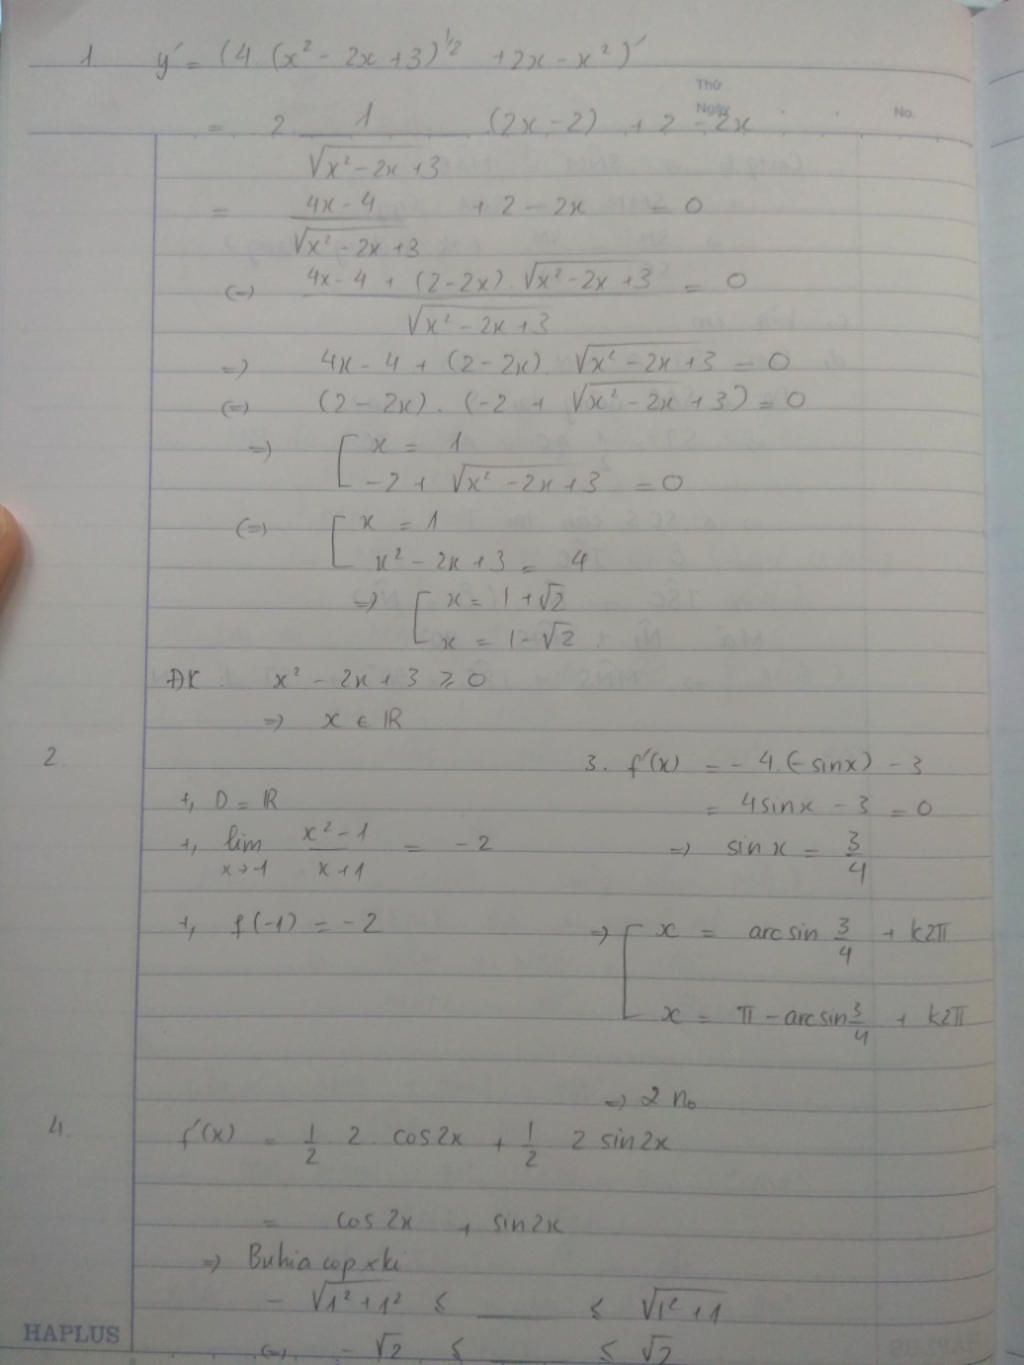 1 y' = (4 (x² - 2x + 3)^1/2 + 2x - x²)'
Thứ
Ngày No.
= 2 1 (2x - 2) + 2 - 2x
√x² - 2x + 3
= 4x - 4 + 2 - 2x = 0
√x² - 2x + 3
(=) 4x - 4 + (2 - 2x). √x² - 2x + 3 = 0
√x² - 2x + 3
=) 4x - 4 + (2 - 2x). √x² - 2x + 3 = 0
(=) (2 - 2x). (-2 + √x² - 2x + 3) = 0
=) [ x = 1
-2 + √x² - 2x + 3 = 0
(=) [ x = 1
x² - 2x + 3 = 4
=) [ x = 1 + √2
x = 1 - √2
ĐK x² - 2x + 3 ≥ 0
=) x ∈ ℝ
2.
+, D = ℝ
+, lim x² - 1 = -2
x→-1 x + 1
+, f(-1) = -2
3. f'(x) = - 4.(-sinx) - 3
= 4sinx - 3 = 0
=) sinx = 3/4
=) [ x = arcsin 3/4 + k2π
x = π - arcsin 3/4 + k2π
=) 2 no
4. f'(x) = 1/2 2 cos2x + 1/2 2 sin2x
= cos2x + sin2x
=) Buhia cop xki
- √1² + 1² ≤ ___ ≤ √1² + 1
(=) - √2 ≤ ≤ √2
HAPLUS